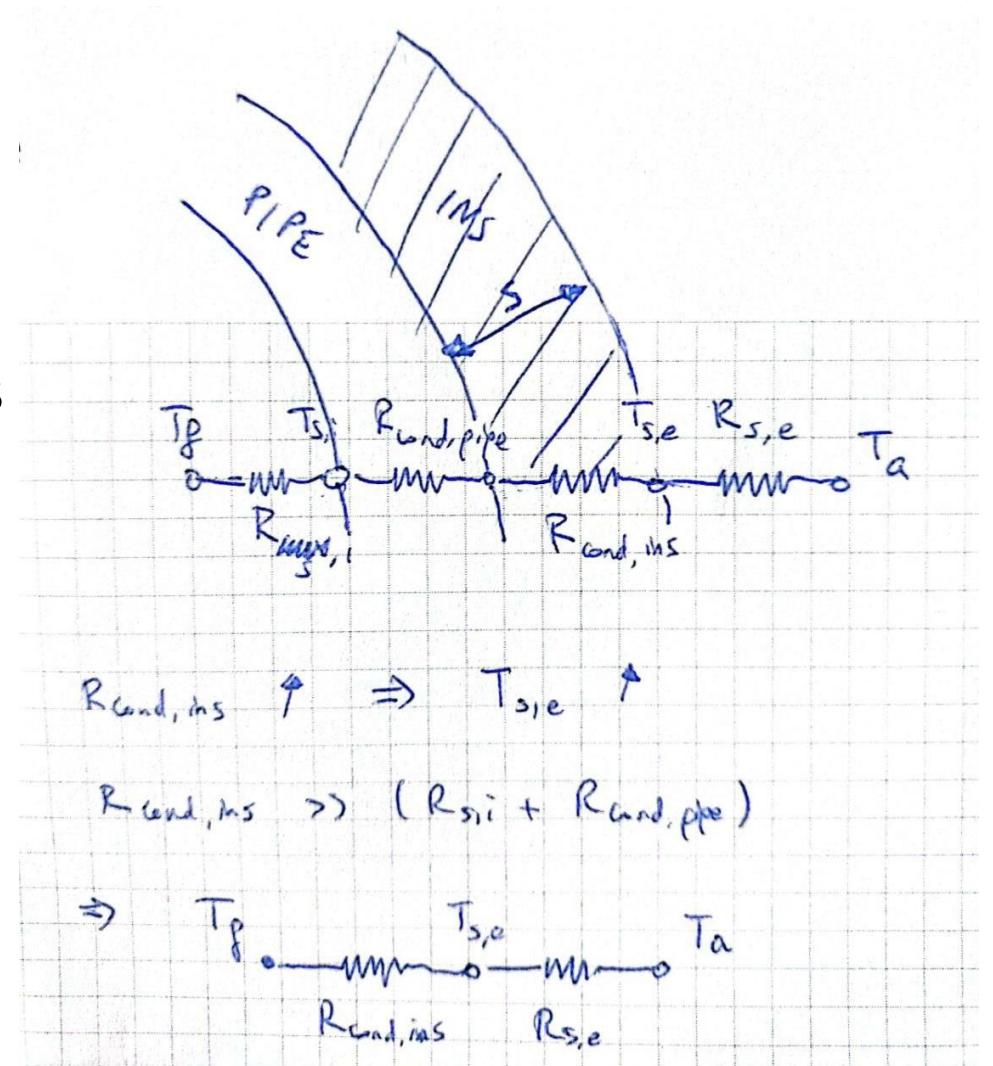 PIPE
INS
S
Tf Ts,i Rcond,pipe Ts,e Rs,e Ta
Rs,i Rcond,ins
Rcond,ins ↑ ⇒ Ts,e ↑
Rcond,ins >> (Rs,i + Rcond,pipe)
⇒ Tf Ts,e Ta
Rcond,ins Rs,e